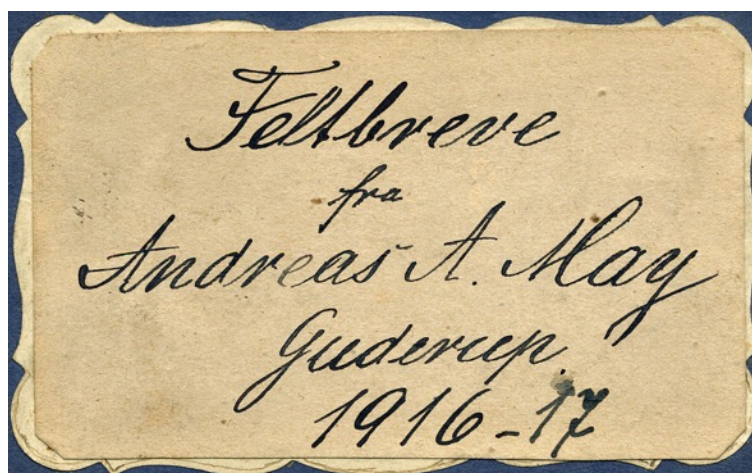 Feltbreve
fra
Andreas A. May
Guderup.
1916-17